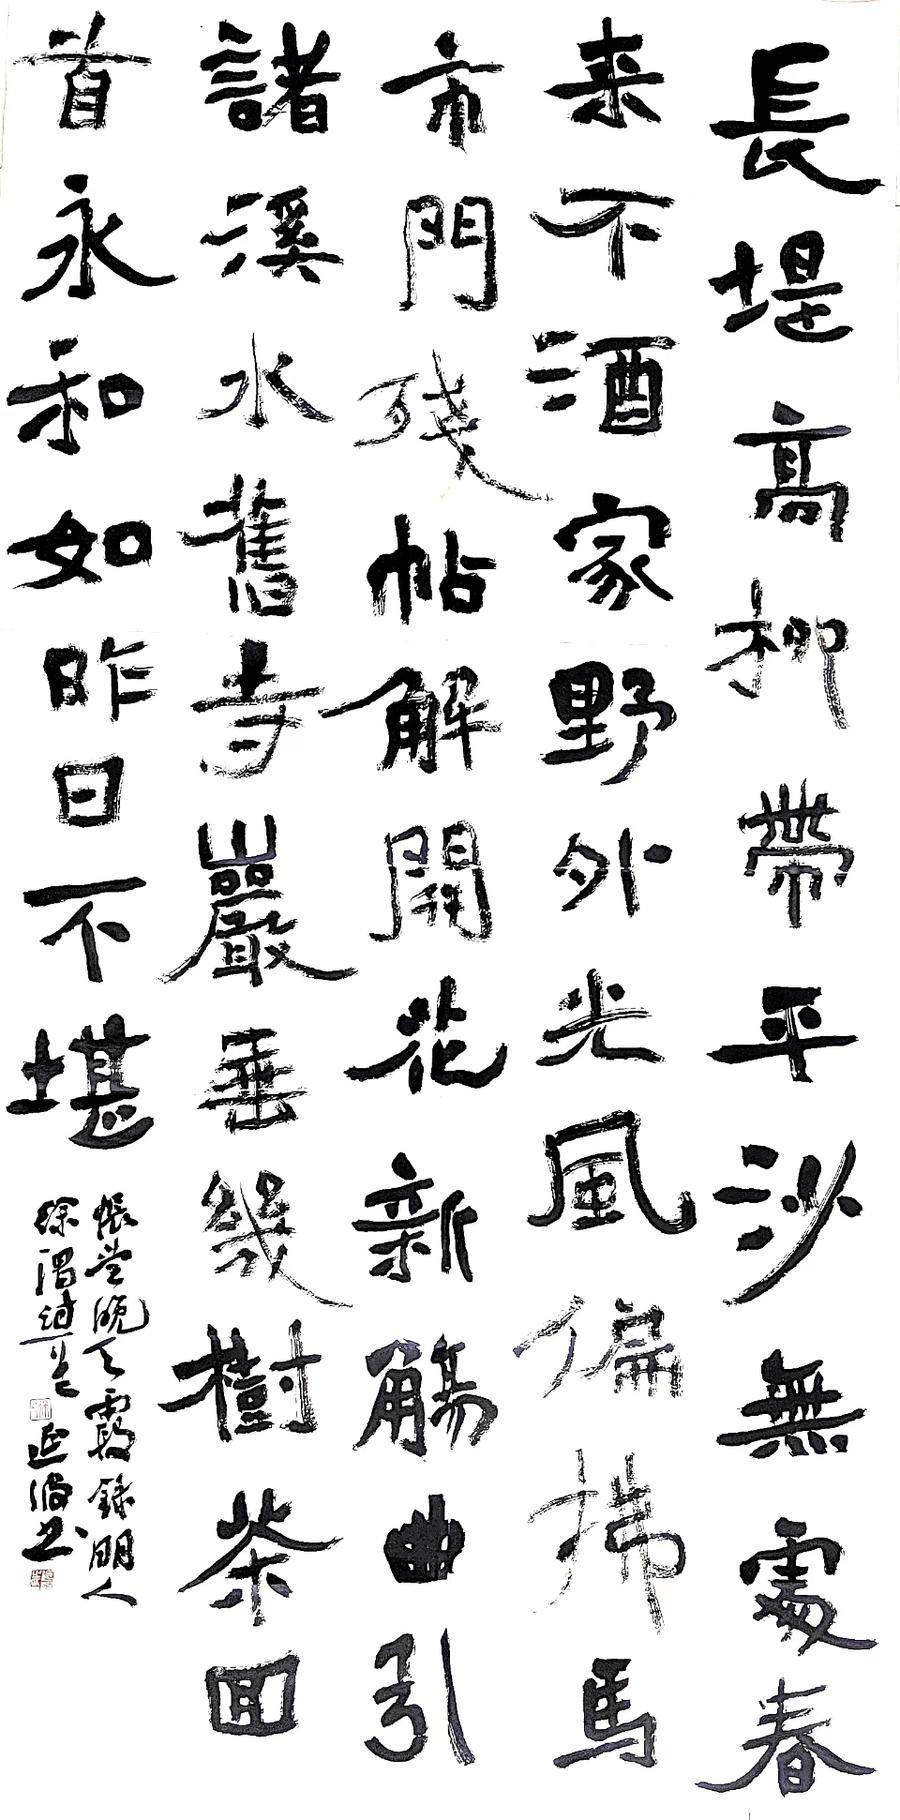 長堤高柳帶平沙無處春
来不酒家野外光風偏拂馬
市門殘帖解開花新觴曲引
諸溪水舊寺巖垂幾樹茶回
首永和如昨日不堪
悵望晚天霞錄明人
徐渭詩 書